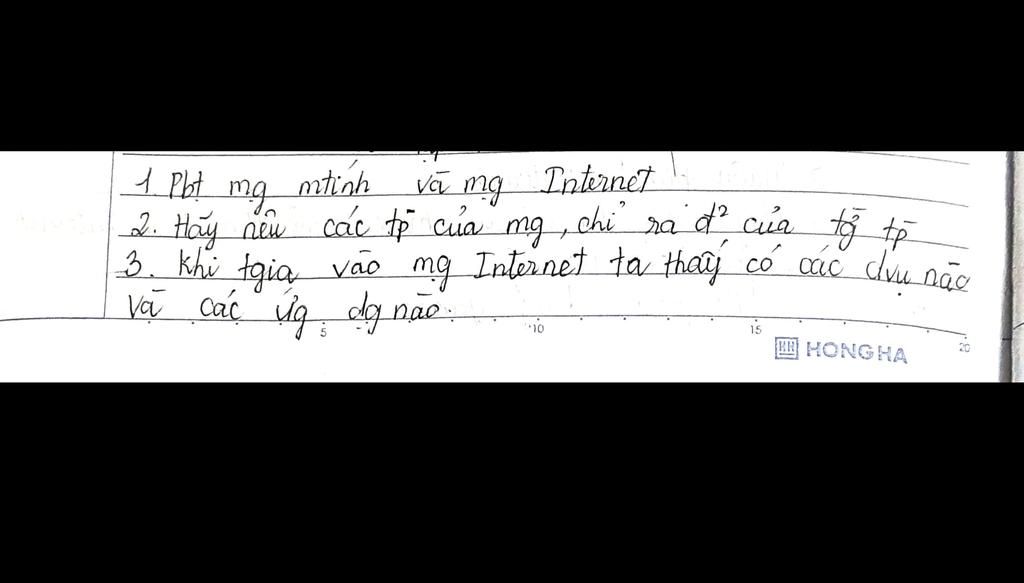 1. Pbt mg mtính và mg Internet
2. Hãy nêu các tp của mg, chỉ ra đ² của tg tp
3. Khi tgia vào mg Internet ta thấy có các dvụ nào
và các ứg dg nào.
5 10 15 20
HH HONG HA